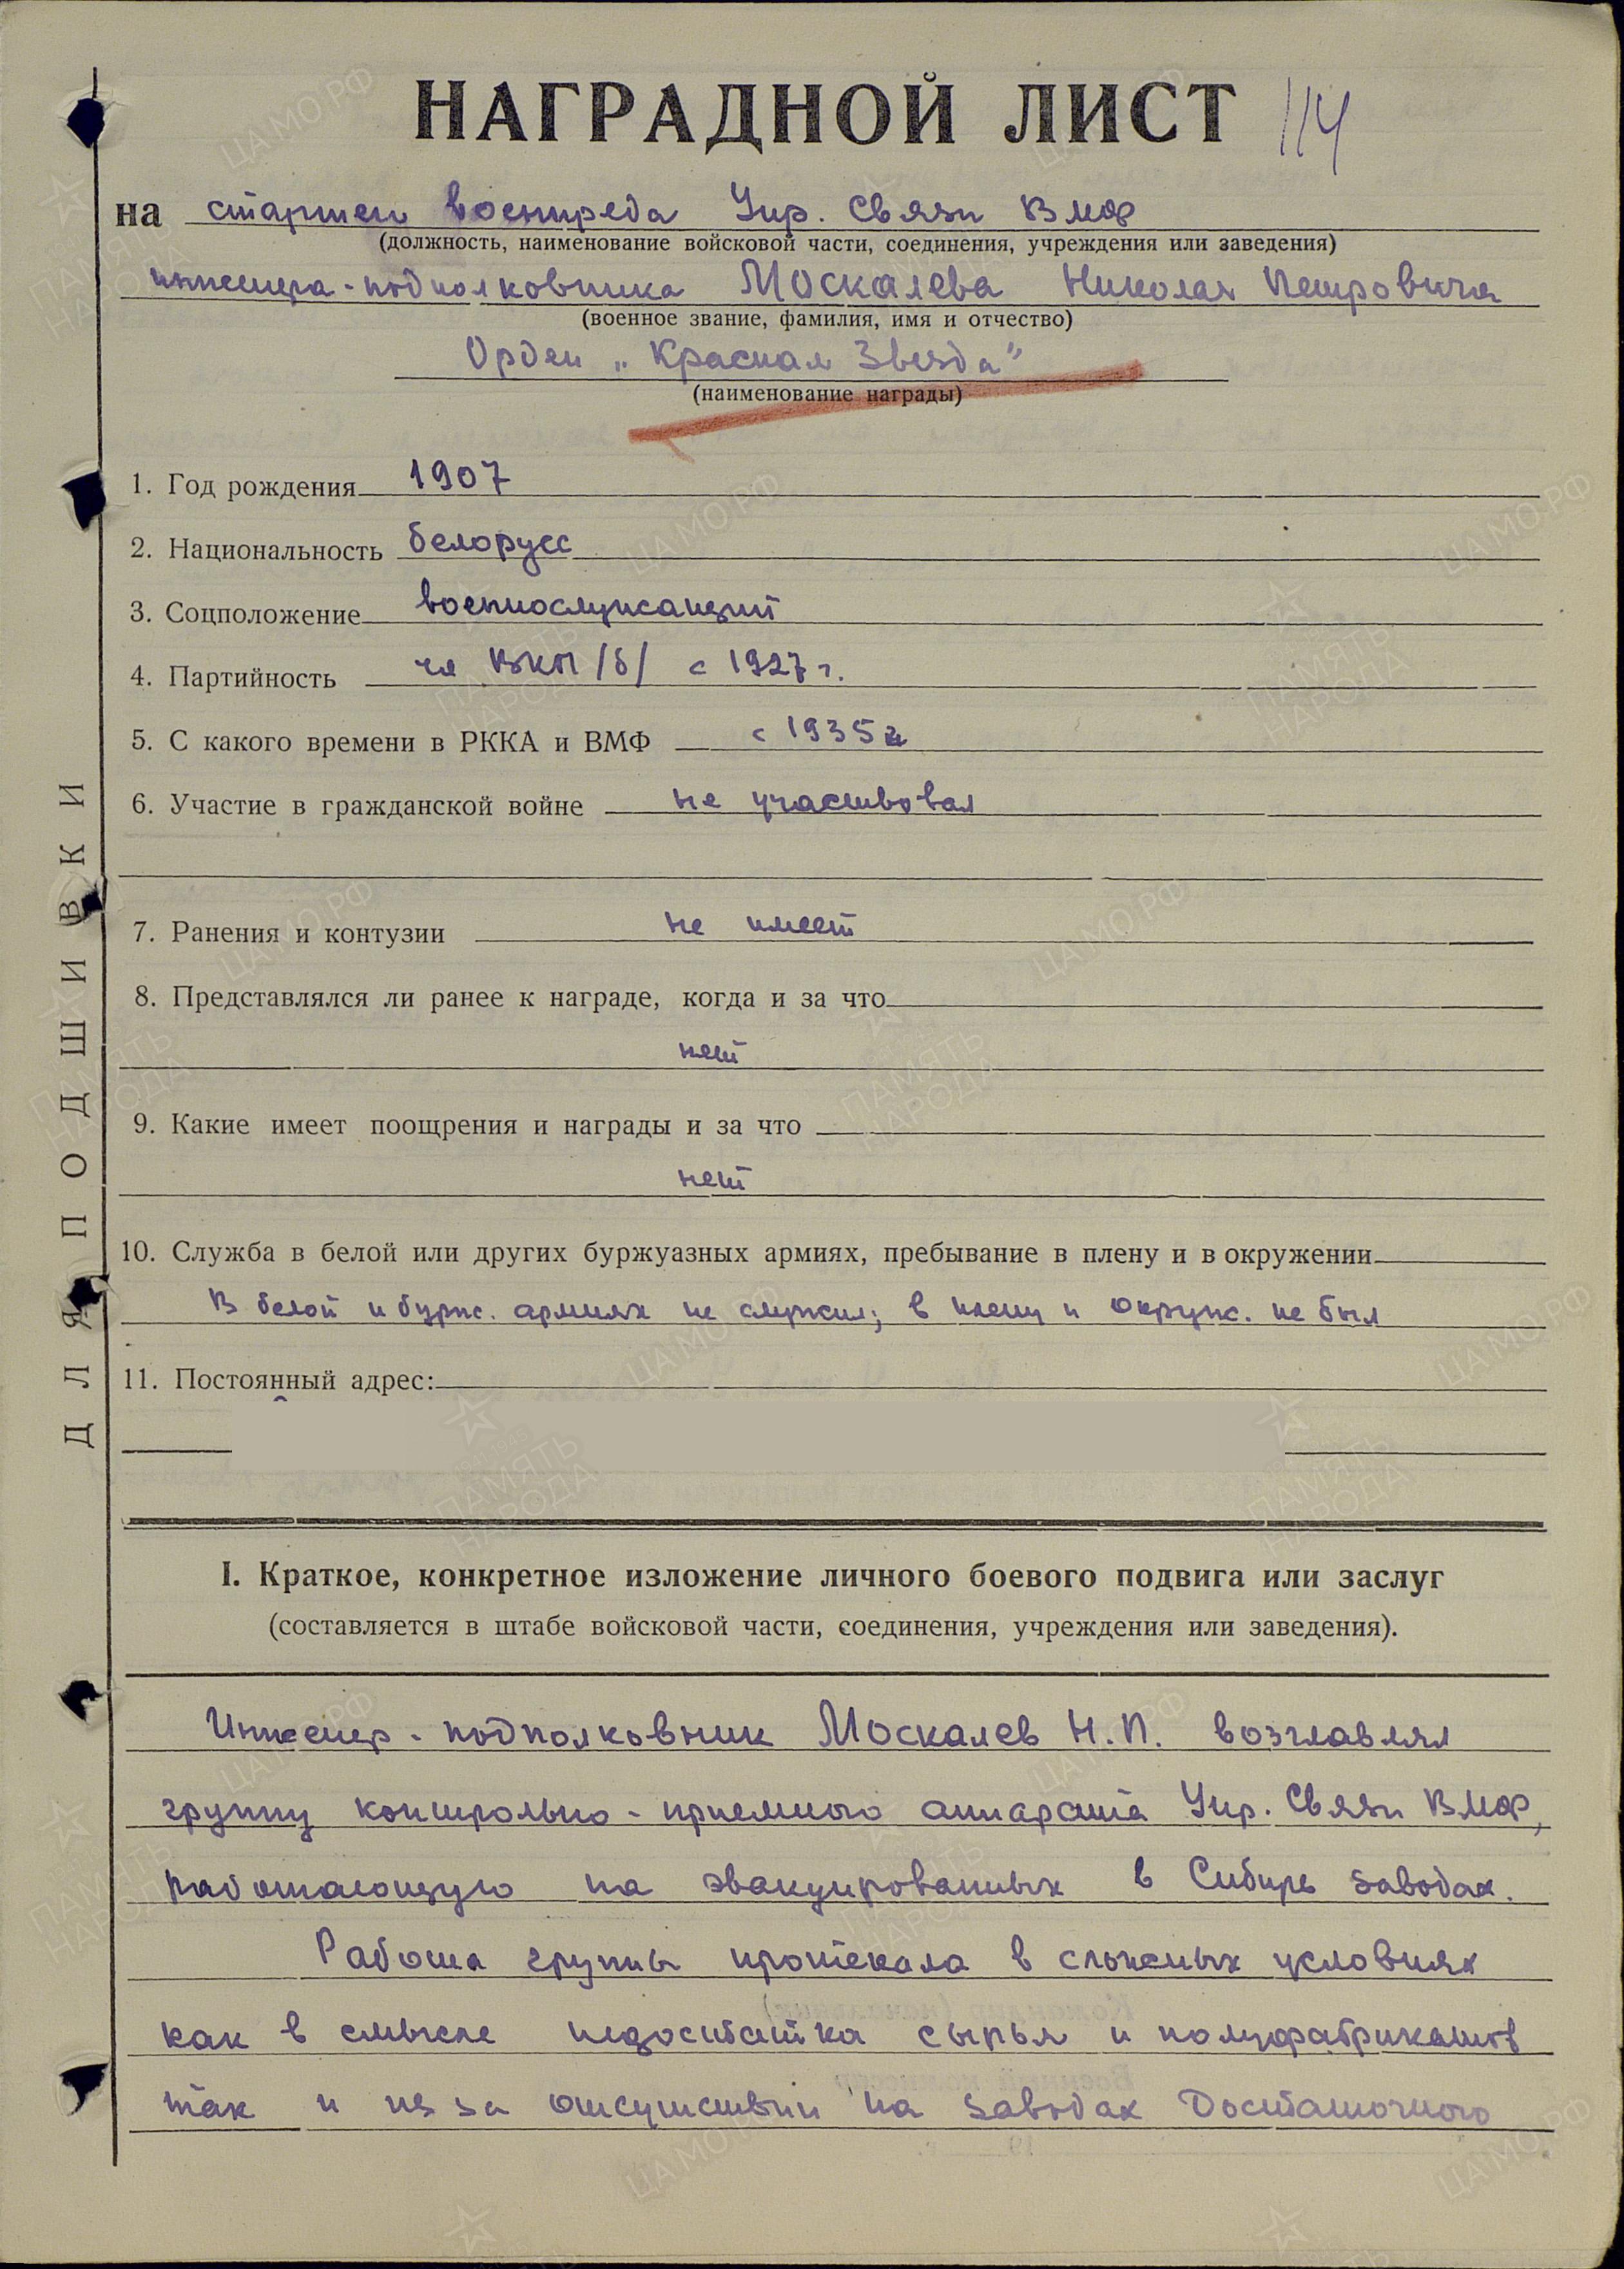 НАГРАДНОЙ ЛИСТ 114
на старшего военпреда Упр. Связи ВМФ
(должность, наименование войсковой части, соединения, учреждения или заведения)
инженера-подполковника Москалева Николая Петровича
(военное звание, фамилия, имя и отчество)
Орден „Красная Звезда"
(наименование награды)
1. Год рождения 1907
2. Национальность белорусс
3. Соцположение военнослужащий
4. Партийность чл ВКП/б/ с 1927 г.
5. С какого времени в РККА и ВМФ с 1935 г
6. Участие в гражданской войне не участвовал
7. Ранения и контузии не имеет
8. Представлялся ли ранее к награде, когда и за что
нет
9. Какие имеет поощрения и награды и за что
нет
10. Служба в белой или других буржуазных армиях, пребывание в плену и в окружении
В белой и бурж. армиях не служил; в плену и окруж. не был
11. Постоянный адрес:
I. Краткое, конкретное изложение личного боевого подвига или заслуг
(составляется в штабе войсковой части, соединения, учреждения или заведения).
Инженер-подполковник Москалев Н.П. возглавлял
группу контрольно-приемного аппарата Упр. Связи ВМФ,
работающую на эвакуированных в Сибирь заводах.
Работа группы протекала в сложных условиях
как в смысле недостатка сырья и полуфабрикатов
так и из за отсутствии на заводах достаточного
ДЛЯ ПОДШИВКИ
ЦАМО.РФ
ПАМЯТЬ НАРОДА